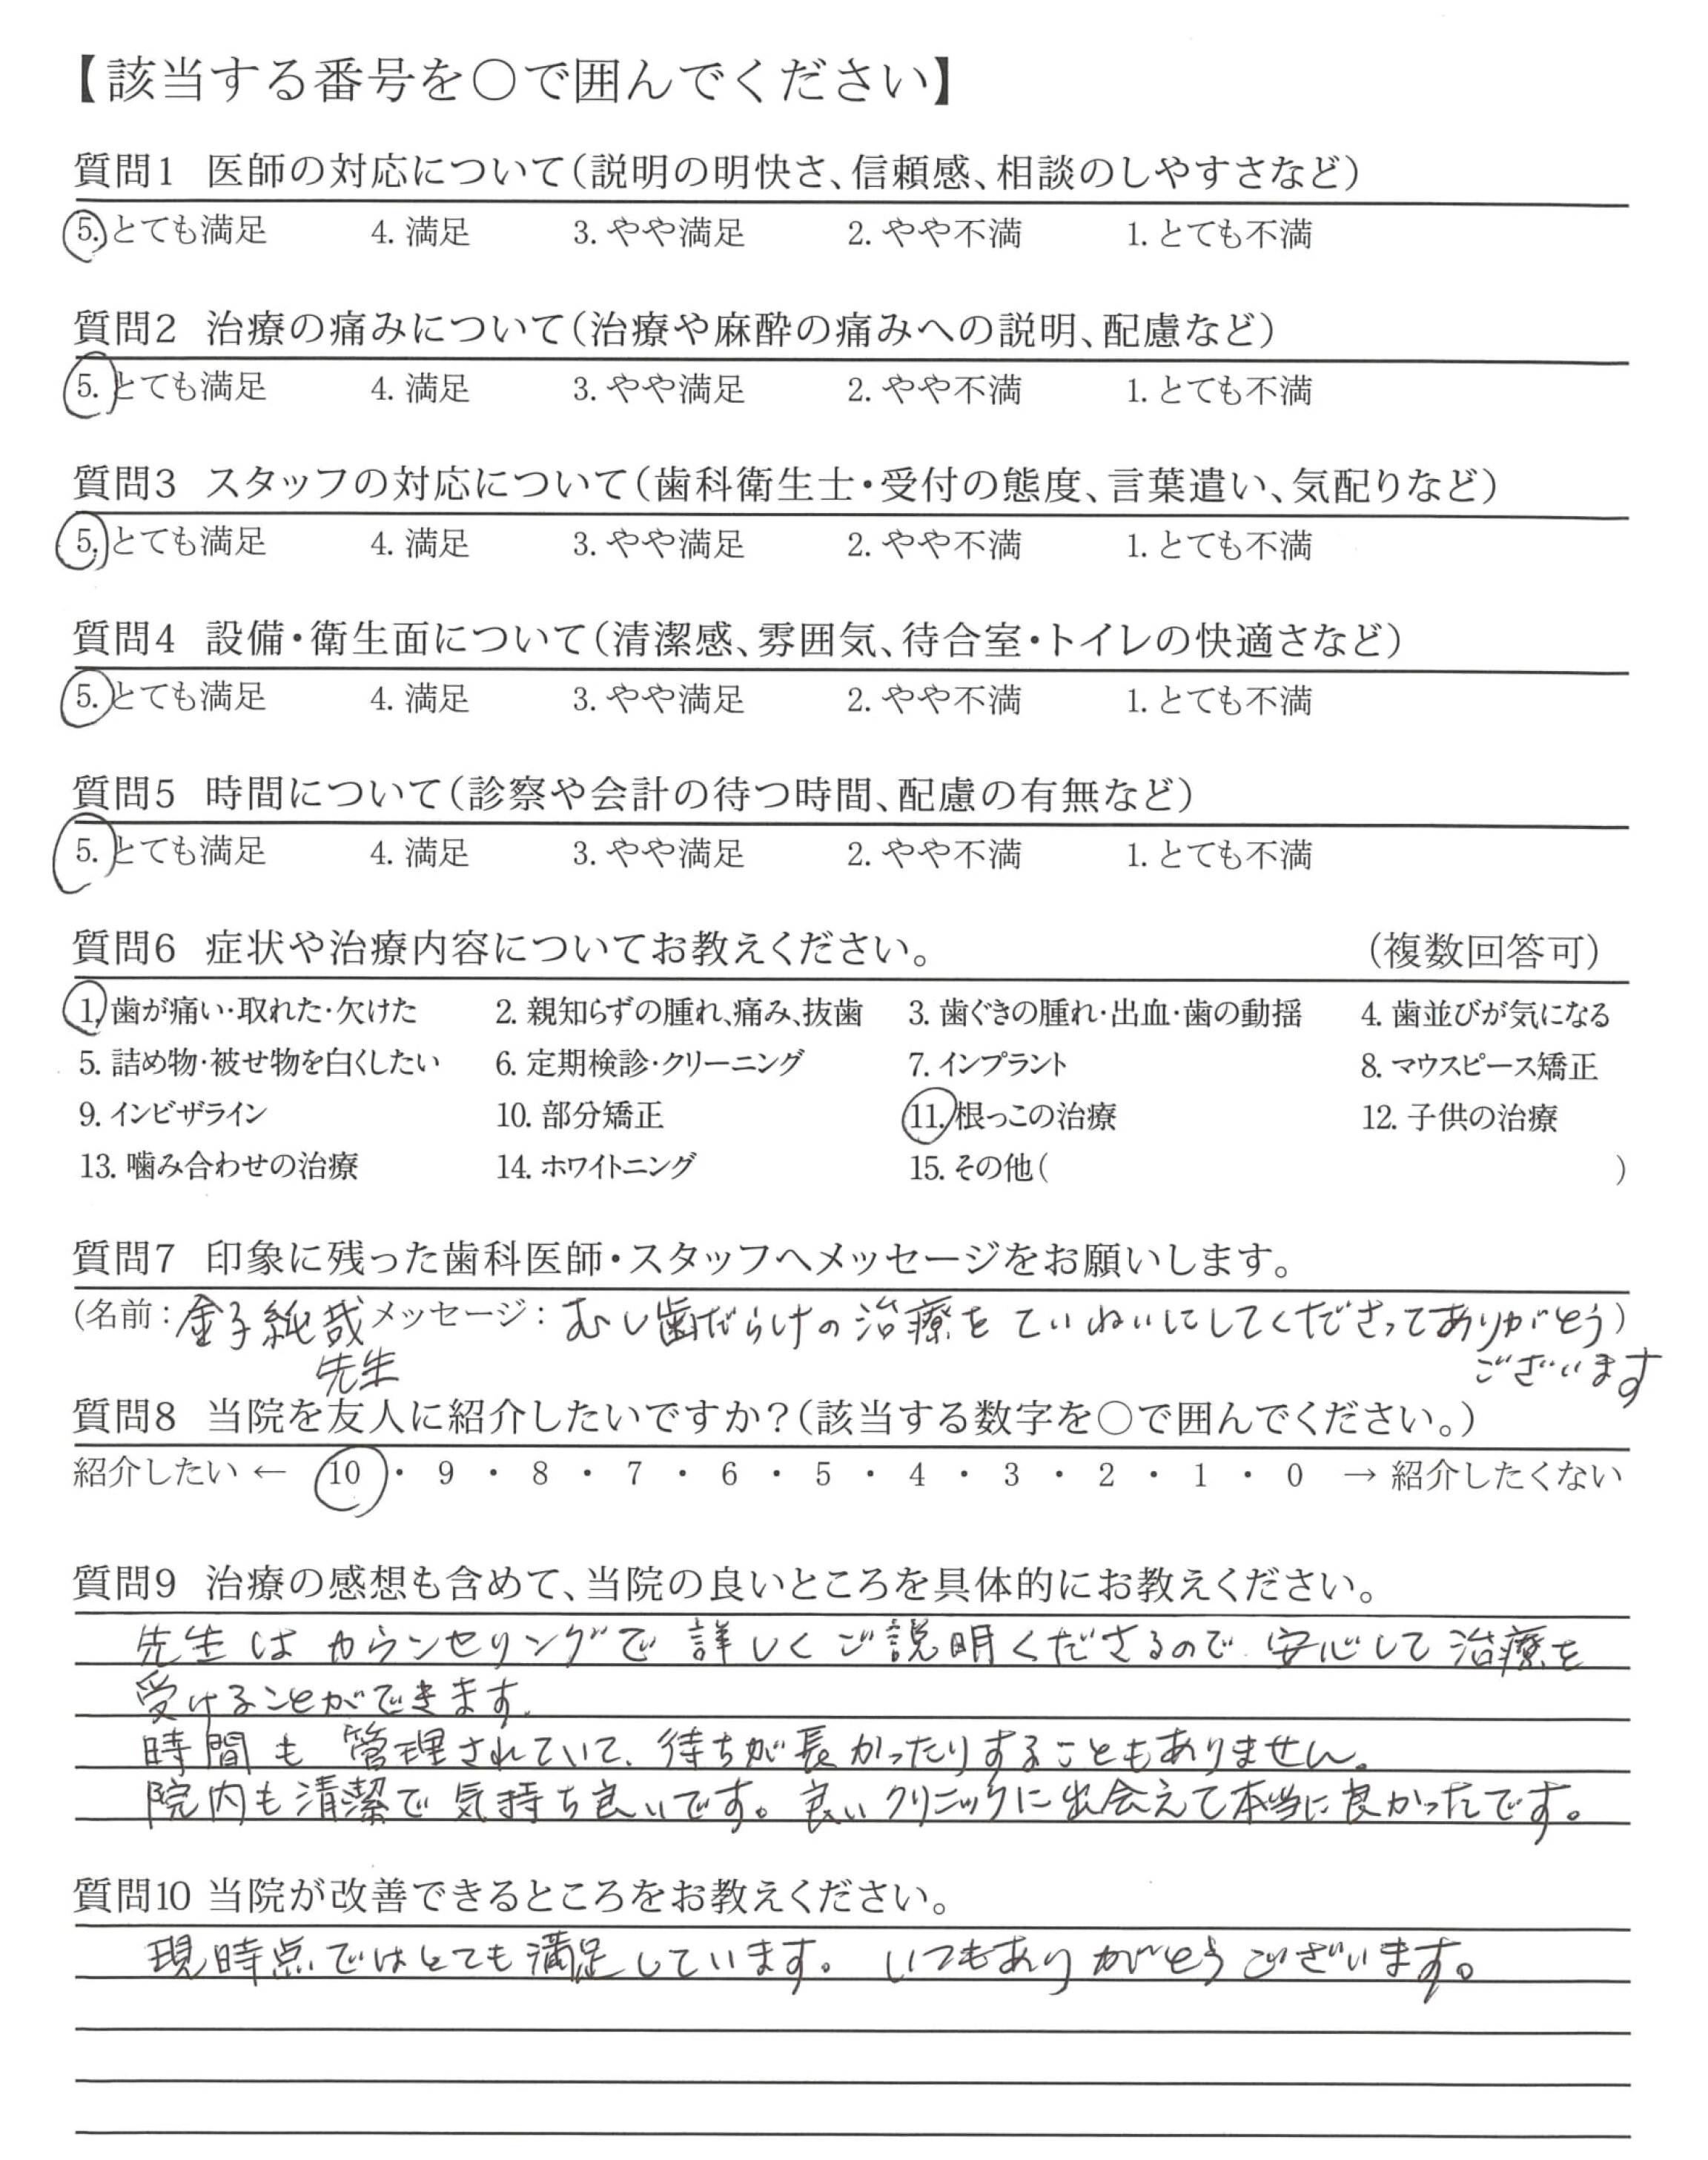 【該当する番号を○で囲んでください】
質問1 医師の対応について(説明の明快さ、信頼感、相談のしやすさなど)
5. とても満足 4. 満足 3. やや満足 2. やや不満 1. とても不満
質問2 治療の痛みについて(治療や麻酔の痛みへの説明、配慮など)
5. とても満足 4. 満足 3. やや満足 2. やや不満 1. とても不満
質問3 スタッフの対応について(歯科衛生士・受付の態度、言葉遣い、気配りなど)
5. とても満足 4. 満足 3. やや満足 2. やや不満 1. とても不満
質問4 設備・衛生面について(清潔感、雰囲気、待合室・トイレの快適さなど)
5. とても満足 4. 満足 3. やや満足 2. やや不満 1. とても不満
質問5 時間について(診察や会計の待つ時間、配慮の有無など)
5. とても満足 4. 満足 3. やや満足 2. やや不満 1. とても不満
質問6 症状や治療内容についてお教えください。 (複数回答可)
1. 歯が痛い・取れた・欠けた 2. 親知らずの腫れ、痛み、抜歯 3. 歯ぐきの腫れ・出血・歯の動揺 4. 歯並びが気になる
5. 詰め物・被せ物を白くしたい 6. 定期検診・クリーニング 7. インプラント 8. マウスピース矯正
9. インビザライン 10. 部分矯正 11. 根っこの治療 12. 子供の治療
13. 噛み合わせの治療 14. ホワイトニング 15. その他( )
質問7 印象に残った歯科医師・スタッフへメッセージをお願いします。
(名前:金子純哉 メッセージ:むし歯だらけの治療をていねいにしてくださってありがとう)
先生 ございます
質問8 当院を友人に紹介したいですか?(該当する数字を○で囲んでください。)
紹介したい ← 10 ・ 9 ・ 8 ・ 7 ・ 6 ・ 5 ・ 4 ・ 3 ・ 2 ・ 1 ・ 0 → 紹介したくない
質問9 治療の感想も含めて、当院の良いところを具体的にお教えください。
先生はカウンセリングで詳しくご説明くださるので安心して治療を
受けることができます。
時間も管理されていて、待ちが長かったりすることもありません。
院内も清潔で気持ち良いです。良いクリニックに出会えて本当に良かったです。
質問10 当院が改善できるところをお教えください。
現時点ではとても満足しています。いつもありがとうございます。